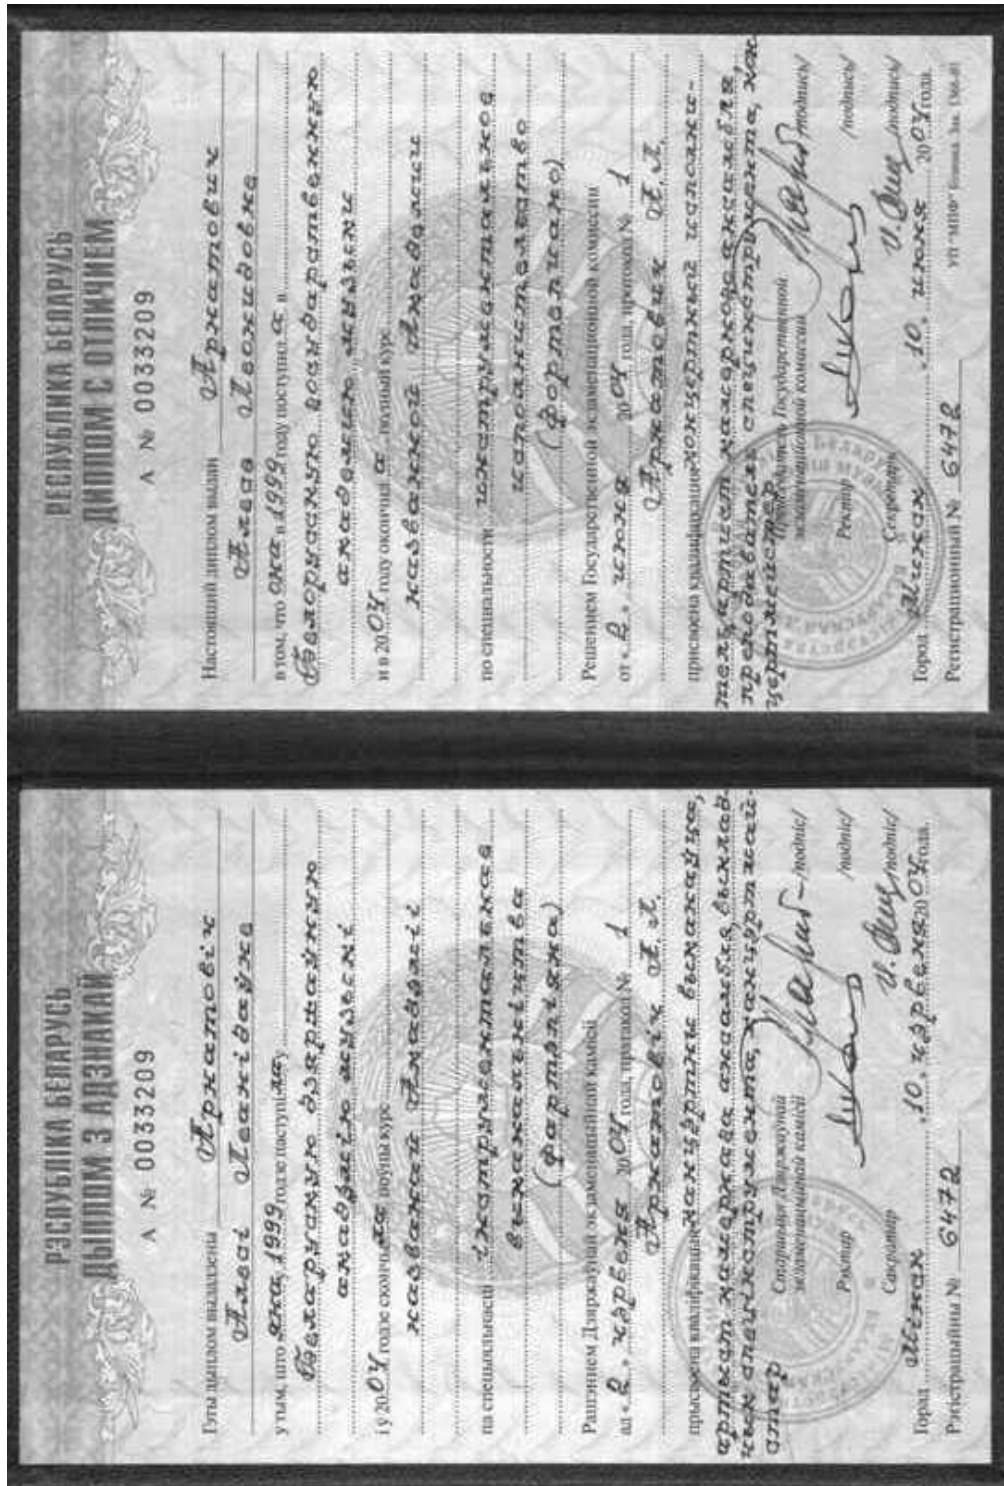 РЭСПУБЛІКА БЕЛАРУСЬ
ДЫПЛОМ З АДЗНАКАЙ
А № 0033209
Гэты дыплом выдадзены Аркатовіч
Алесі Леанідаўне
у тым, што яна, 1999 годзе паступіла у
Беларускую дзяржаўную
акадэмію музыкі
і у 2004 годзе скончыла поўны курс
названай Акадэміі
па спецыяльнасці інструментальнае
выканальніцтва
(фартэпіяна)
Рашэннем Дзяржаўнай экзаменацыйнай камісіі
ад «2» чэрвеня 2004 года, пратакол № 1
Аркатовіч А.Л.
прысвоена кваліфікацыя канцэртны выканаўца,
артыст камернага ансамбля, выклад-
чык спецінструмента, канцэртмай-
стар
Старшыня Дзяржаўнай
экзаменацыйнай камісіі /подпіс/
Рэктар /подпіс/
Сакратар /подпіс/
Горад Мінск «10» чэрвеня 2004 года.
Рэгістрацыйны № 6472
РЕСПУБЛИКА БЕЛАРУСЬ
ДИПЛОМ С ОТЛИЧИЕМ
А № 0033209
Настоящий диплом выдан Аркатович
Алесе Леонидовне
в том, что она в 1999 году поступила в
Белорусскую государственную
академию музыки
и в 2004 году окончила полный курс
названной Академии
по специальности инструментальное
исполнительство
(фортепиано)
Решением Государственной экзаменационной комиссии
от «2» июня 2004 года, протокол № 1
Аркатович А.Л.
присвоена квалификация концертный исполни-
тель, артист камерного ансамбля,
преподаватель специнструмента, кон-
цертмейстер
Председатель Государственной
экзаменационной комиссии /подпись/
Ректор /подпись/
Секретарь /подпись/
Город Минск «10» июня 2004 года.
Регистрационный № 6472